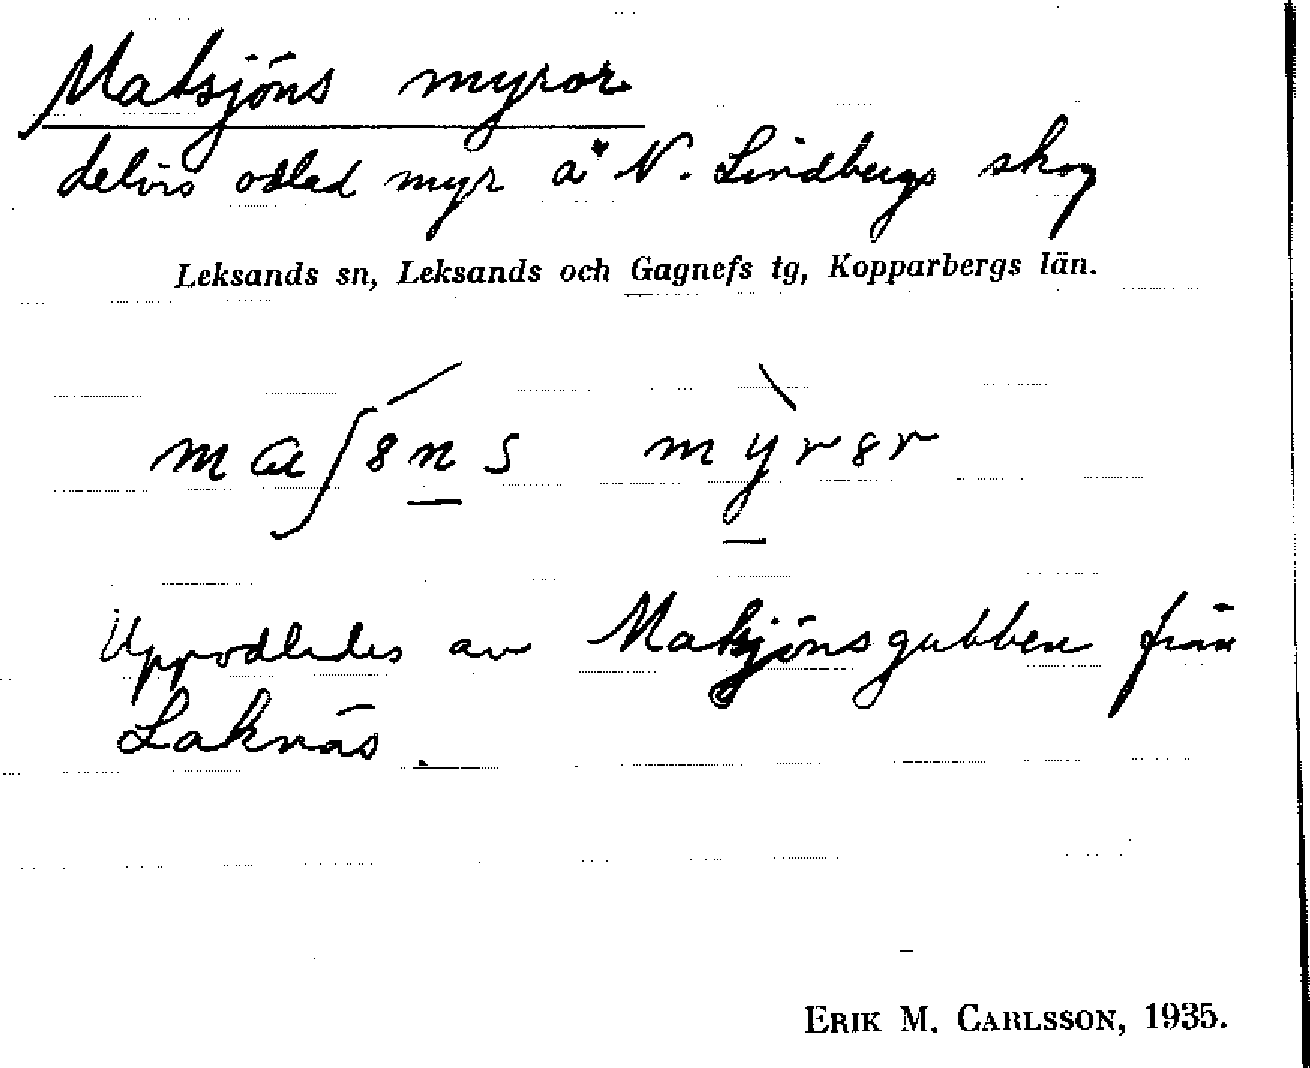 Matsjöns myror
delvis odlad myr å N. Lindbergs skog
Leksands sn, Leksands och Gagnefs tg, Kopparbergs län.
maʃ8ns myr8r
Uppodlades av Matsjönsgubben från
Laknäs.
ERIK M. CARLSSON, 1935.